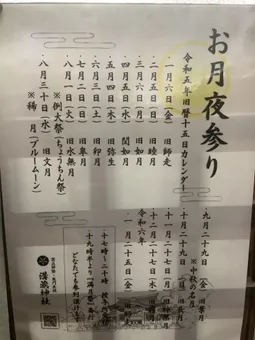 お月夜参り
令和五年旧暦十五日カレンダー
一月六日(金) 旧師走
二月五日(日) 旧睦月
三月六日(月) 旧如月
四月五日(水) 閏如月
五月四日(木) 旧弥生
六月三日(土) 旧卯月
七月二日(日) 旧皐月
八月一日(火) 旧水無月
※例大祭(ちょうちん祭)
八月三十日(水) 旧文月
※稀 月(ブルームーン)
九月二十九日(金) 旧葉月
※中秋の名月
十月二十九日(日) 旧長月
十一月二十七日(月)
十二月二十七日(水)
令和六年
一月二十五日(金)
十七時〜二十時
十九時半より「満月祭」
どなたでも参列頂けます
神社